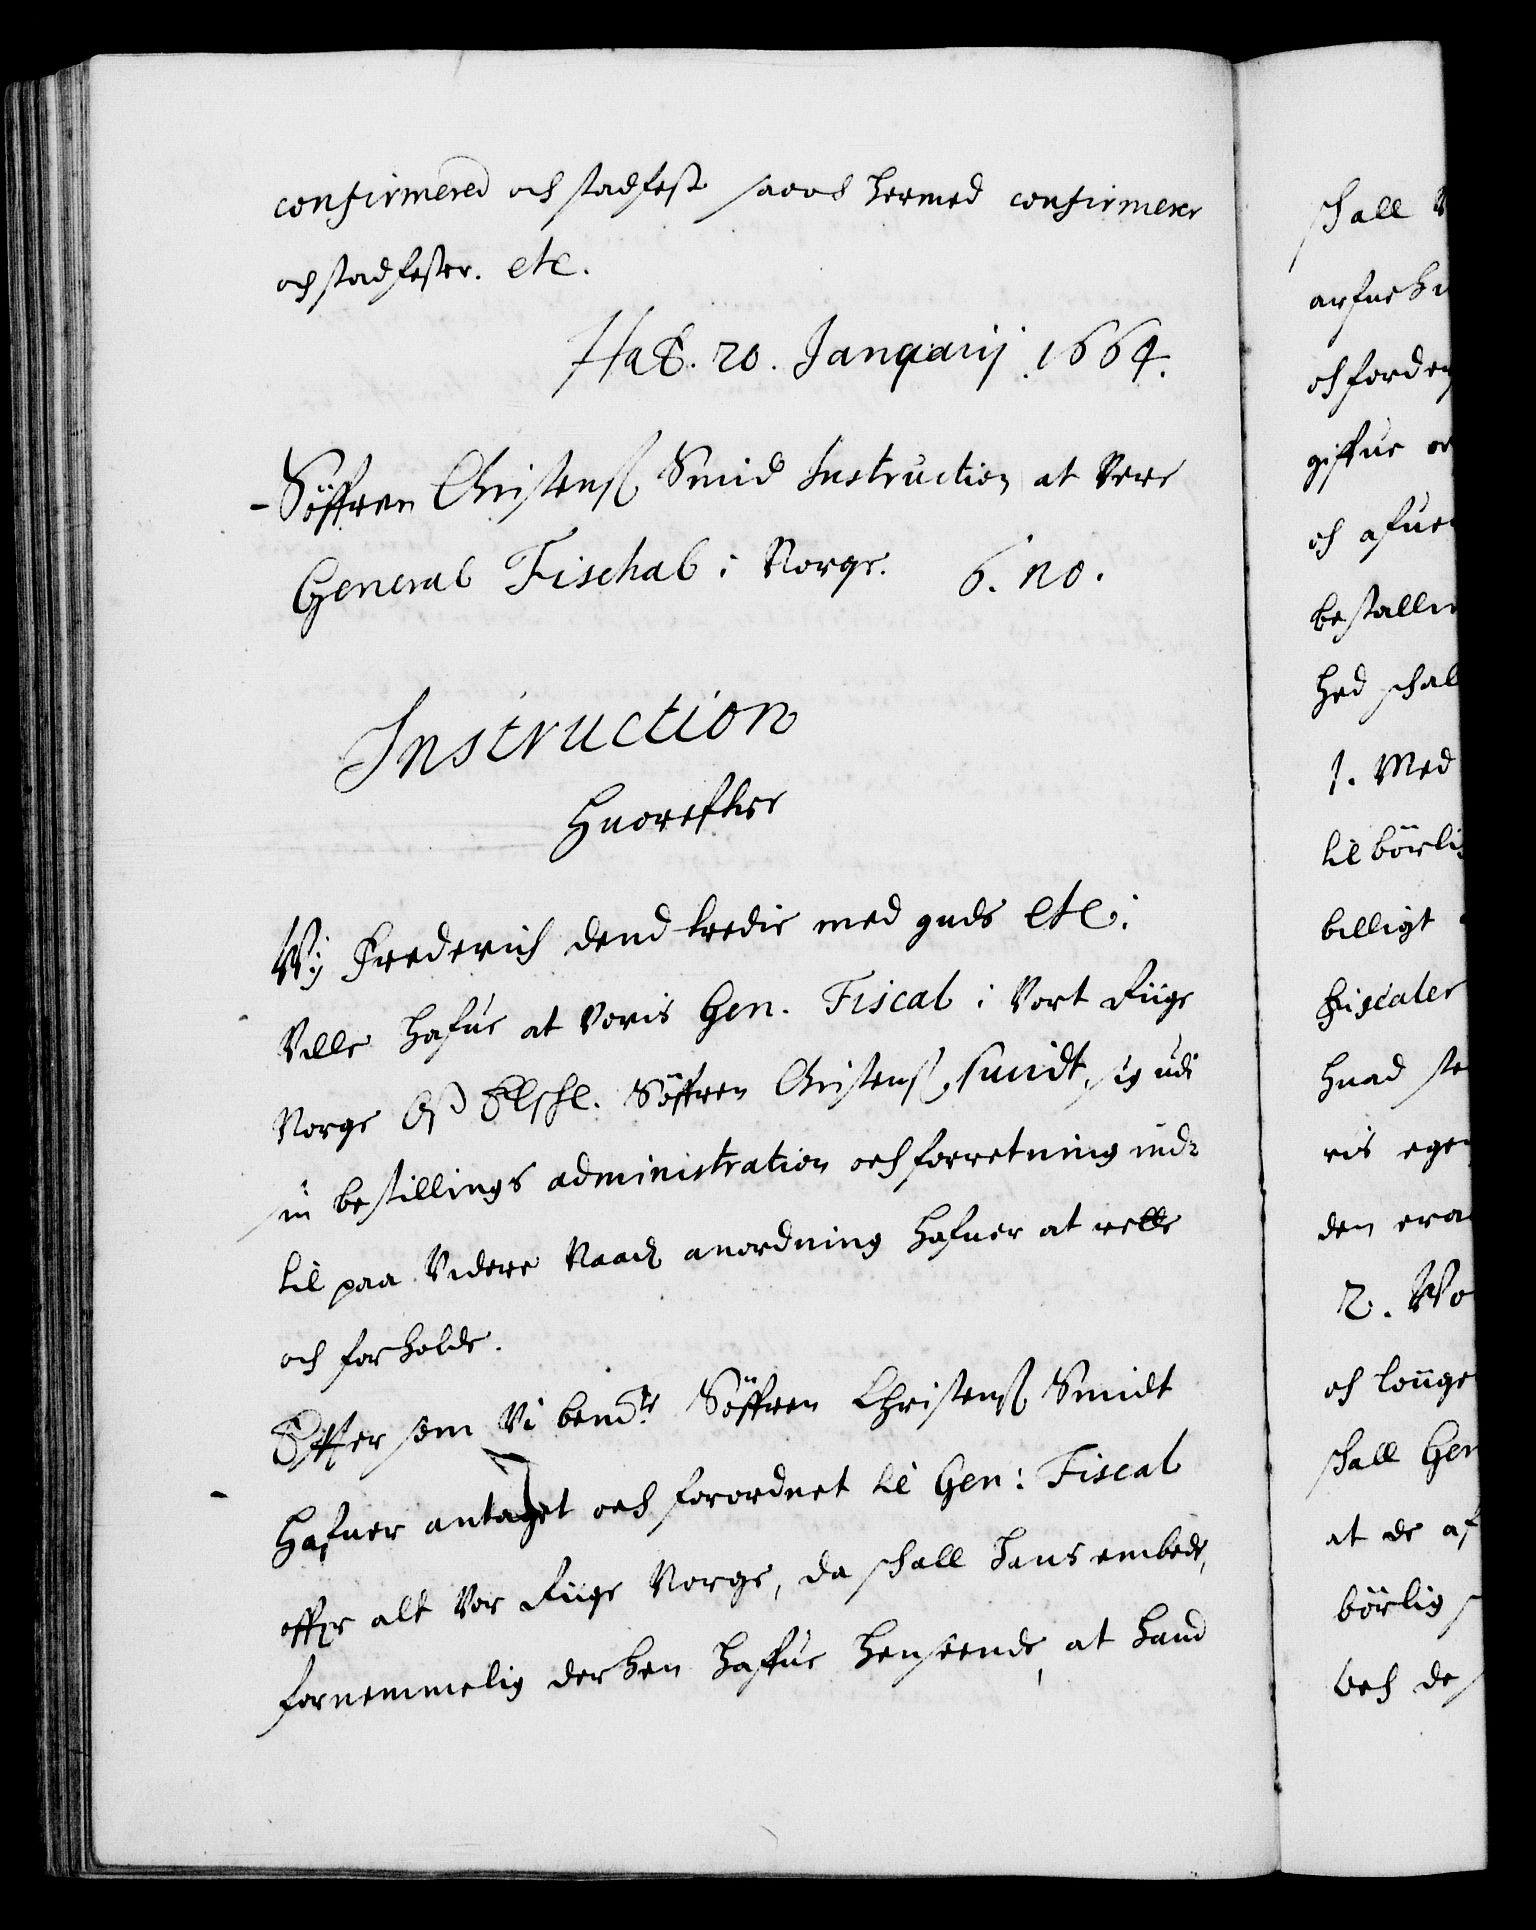 confirmered och stadfest saa och hermed confirmerer
och stadfester. etc.
Haf. 20. Januarij 1664.
Söffren Christens. Smid Instruction at Vere
General Fischal i Norge. 6. no.
Instruction
Huorefter
Wij Frederich dend tredie med guds etc:
Ville hafue at Voris Gen. Fiscal i Vort Riige
Norge Oß Elschl. Söffren Christens. smidt, sig udi
sin bestillings administration och forretning ind
til paa Videre Naad. anordning hafuer at rette
och forholde.
Efftersom Vi bemte Söffren Christens. Smidt
hafuer antaget och forordnet til Gen: Fiscal
offuer alt Vor Riige Norge, da schall hans embede,
fornemmelig derhen haffue henseende, at hand
schall
och
giffue
och
hed schal
1. Med
tilbörlig
billigt
Fiscaler
huad
ris
den
2.
och
schall Gen
at de
börlig
och de